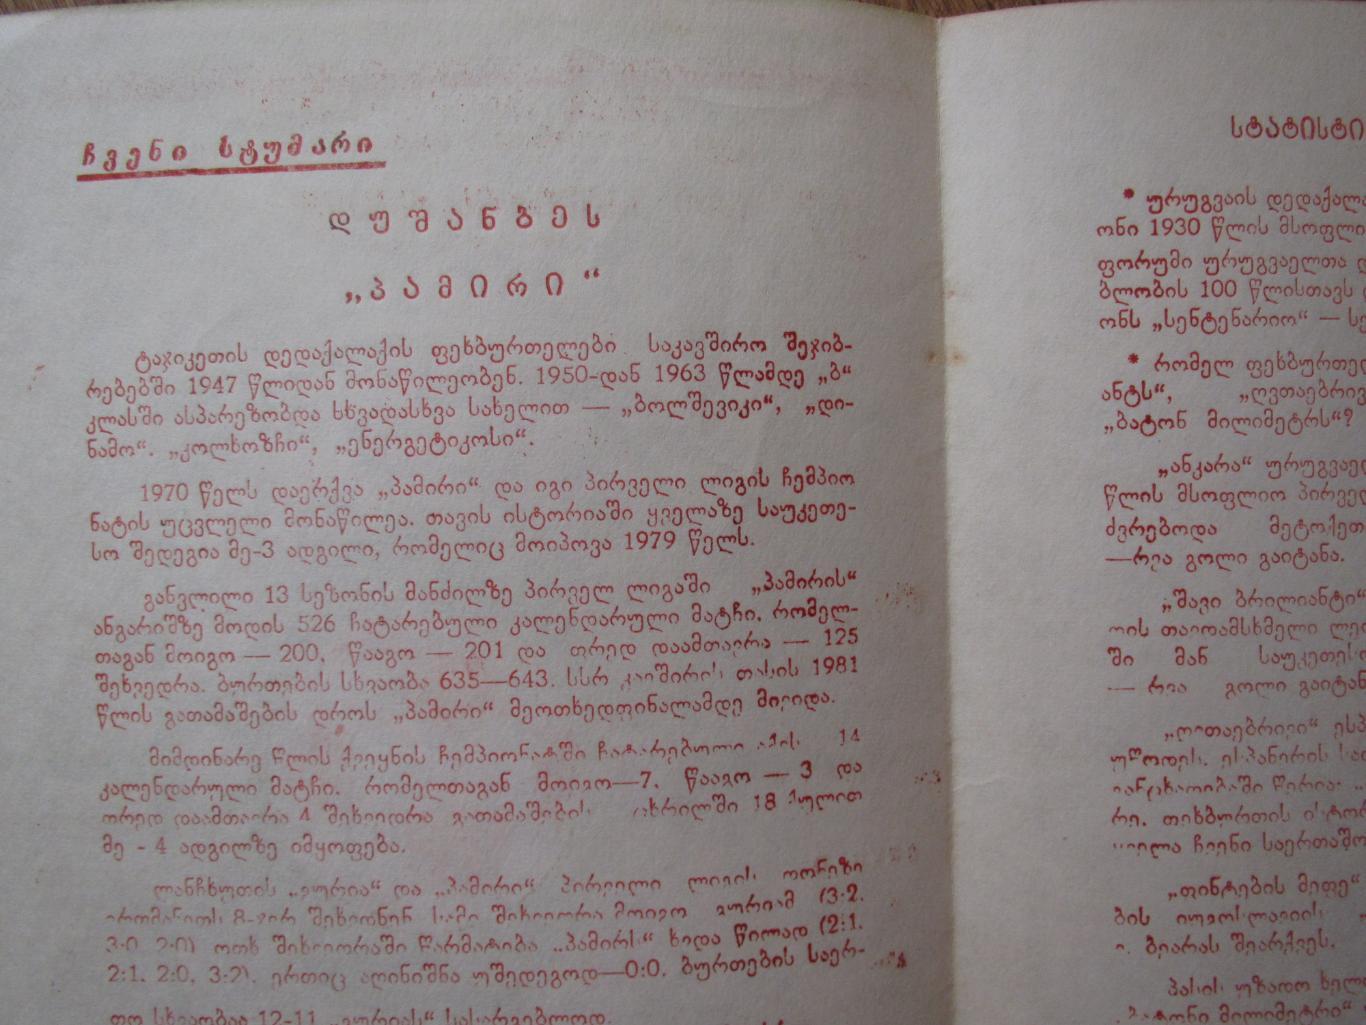 ჩვენი სტუმარი
დუშანბეს
„პამირი“
ტაჯიკეთის დედაქალაქის ფეხბურთელები საკავშირო შეჯიბ-
რებებში 1947 წლიდან მონაწილეობენ. 1950-დან 1963 წლამდე „ბ“
კლასში ასპარეზობდა სხვადასხვა სახელით — „ბოლშევიკი“, „დი-
ნამო“. „კოლხოზჩი“, „ენერგეტიკოსი“.
1970 წელს დაერქვა „პამირი“ და იგი პირველი ლიგის ჩემპიო
ნატის უცვლელი მონაწილეა. თავის ისტორიაში ყველაზე საუკეთე-
სო შედეგია მე-3 ადგილი, რომელიც მოიპოვა 1979 წელს.
განვლილი 13 სეზონის მანძილზე პირველ ლიგაში „პამირის“
ანგარიშზე მოდის 526 ჩატარებული კალენდარული მატჩი. რომელ-
თაგან მოიგო — 200. წააგო — 201 და ფრედ დაამთავრა — 125
შეხვედრა. ბურთების სხვაობა 635—643. სსრ კავშირის თასის 1981
წლის გათამაშების დროს „პამირი“ მეოთხედფინალამდე მივიდა.
მიმდინარე წლის ქვეყნის ჩემპიონატში ჩატარებული აქვს 14
კალენდარული მატჩი. რომელთაგან მოიგო—7. წააგო — 3 და
ფრედ დაამთავრა 4 შეხვედრა გათამაშების ცხრილში 18 ქულით
მე - 4 ადგილზე იმყოფება.
ლანჩხუთის „გურია“ და „პამირი“ პირველი ლიგის
8-ჯერ შეხვდნენ სამი შეხვედრა მოიგო გურიამ (3:2.
3:0 ოთხ შეხვედრაში წარმატება „პამირს“ ხვდა წილად (2:1.
2:1. 2:0. 3:2). ერთიც აღინიშნა უშედეგოდ—0:0. ბურთების საერ-
თო სხვაობაა 12-11 „გურიას“ სასარგებლოდ.
სტატისტი
* ურუგვაის დედაქალა
ონი 1930 წლის მსოფლი
ფორუმი ურუგვაელთა დ
ბლობის 100 წლისთავს
ონს „სენტენარიო“ — სტ
* რომელ ფეხბურთელ
ანტს“, „ღვთაებრივ
„ბატონ მილიმეტრს“?
„ანკარა“ ურუგვაელ
წლის მსოფლიო პირველ
ძვრებოდა მეტოქეთ
—რვა გოლი გაიტანა.
„შავი ბრილიანტი“
ლის თავდამსხმელი ლეო
ში მან საუკეთესო
— რვა გოლი გაიტან
„ღვთაებრივი“ ესპ
უწოდეს. ესპანერის
წერია:
რე. ფეხბურთის ისტორ
ჩვენი საერთაშო
„ფინტების მეფე“
ბის იუგოსლავიის
ბეარას შეარქვეს.
პასის უზადო ხელ
„ბატონი მილიმეტრი“